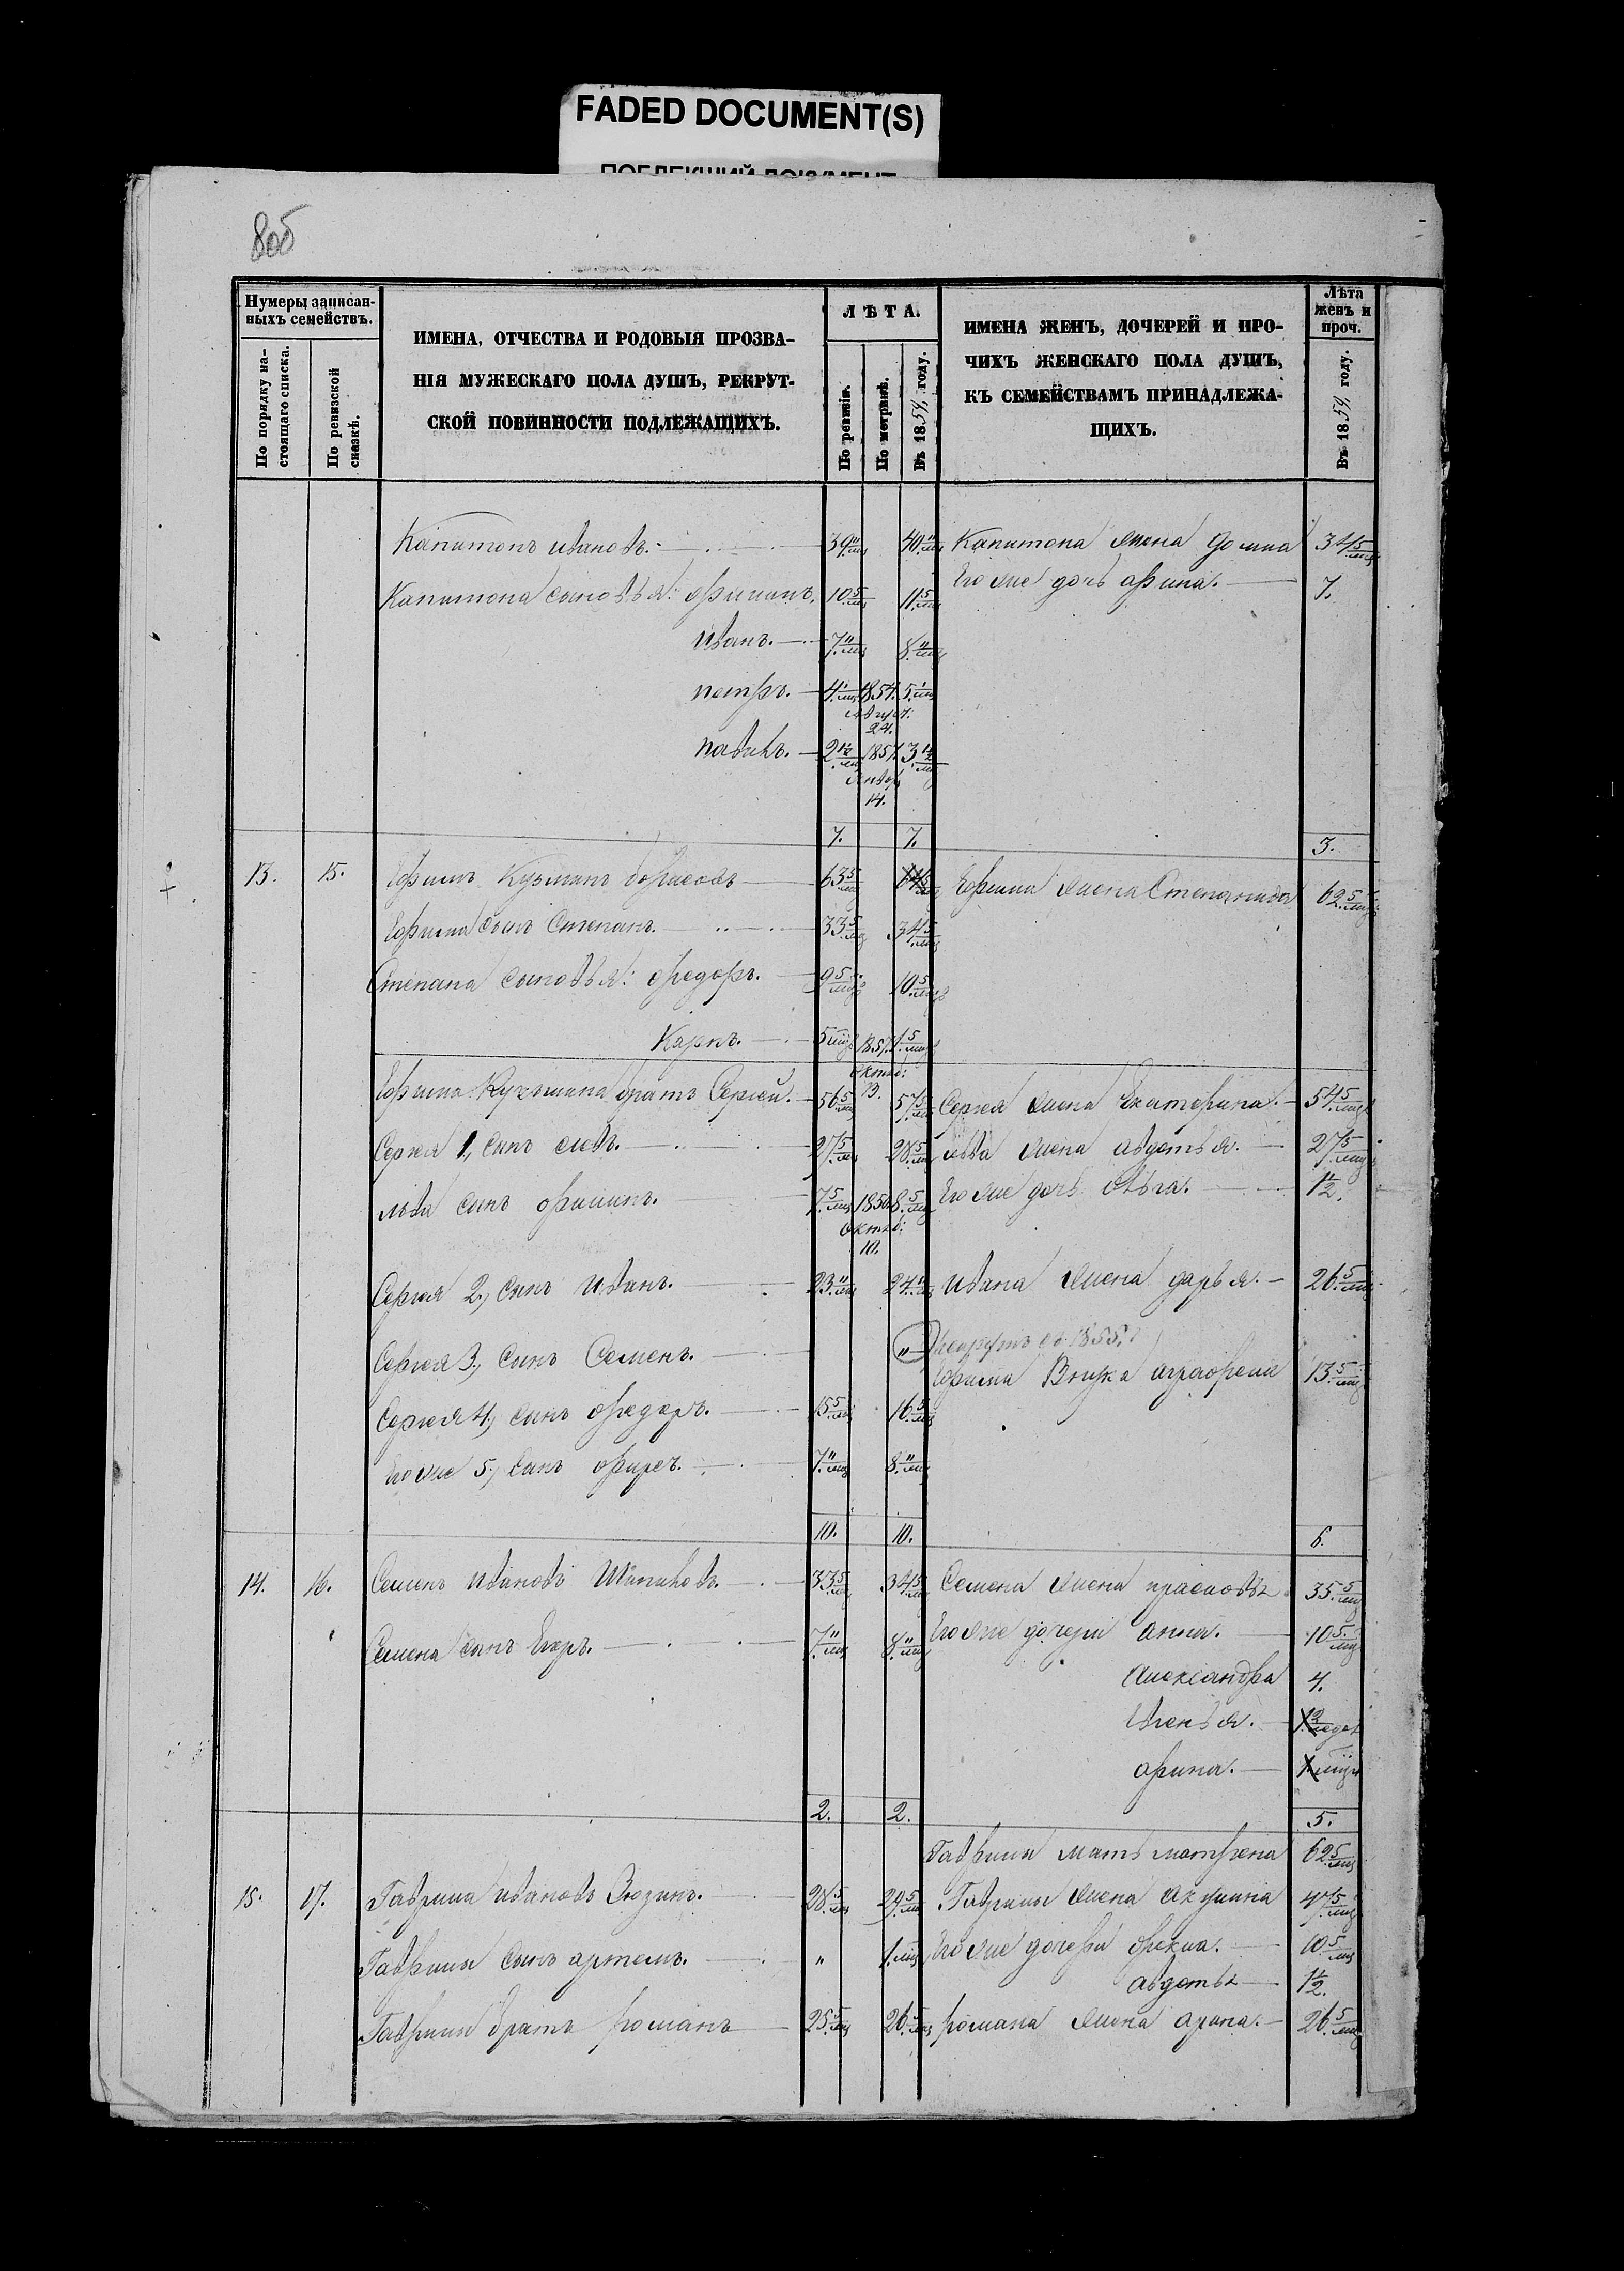 FADED DOCUMENT(S)
ПОБЛЕКШИЙ ДОКУМЕНТ
8об
Нумеры записан-
ныхъ семействъ.
По порядку на-
стоящаго списка.
По ревизской
сказкѣ.
ИМЕНА, ОТЧЕСТВА И РОДОВЫЯ ПРОЗВА-
НІЯ МУЖЕСКАГО ПОЛА ДУШЪ, РЕКРУТ-
СКОЙ ПОВИННОСТИ ПОДЛЕЖАЩИХЪ.
ЛѢТА.
По ревизіи.
По метрикѣ.
Въ 18 году.
ИМЕНА ЖЕНЪ, ДОЧЕРЕЙ И ПРО-
ЧИХЪ ЖЕНСКАГО ПОЛА ДУШЪ,
КЪ СЕМЕЙСТВАМЪ ПРИНАДЛЕЖА-
ЩИХЪ.
Лѣта
женъ и
проч.
Въ 18 году.
Капитонъ ивановъ. 39 40 Капитона жена домна 34 5/мц
Капитона сыновья: филипъ. 10 5/мц 11 5/мц Его же дочь афина. 7.
Иванъ. 7 8
петръ. 4 5
24.
павилъ. 2 1/2 3 1/2
14.
7. 7. 3.
13. 15. Ефимъ Кузминъ борисовъ 63 5/мц Ефима жена Степанида 62 5/мц
Ефима сынъ Степанъ. 33 5/мц 34 5/мц
Степана сыновья: федоръ. 9 5/мц 10 5/мц
Карпъ. 5 мцъ 1 5/мц
октяб:
13.
Ефима Кузмина братъ Сергей. 56 5/мц 57 5/мц Сергея жена Екатерина. 54 5/мц
Сергея 1, сынъ левъ. 27 5/мц 28 5/мц льва жена авдотья. 27 5/мц
льва сынъ филипъ. 7 5/мц 1850 8 5/мц Его же дочь 1 1/2.
октяб:
10.
Сергея 2, сынъ Иванъ. 23 24 ивана жена дарья. 26 5/мц
Сергея 3, сынъ Семенъ. " 1855.
Ефима Внука аграфена 13 5/мц
Сергея 4, сынъ федоръ. 15 5/мц 16 5/мц
Его же 5, сынъ 7 8
10. 10. 6.
14. 16. Семенъ ивановъ 33 5/мц 34 5/мц Семена жена прасковья 35 5/мц
Семена сынъ Егоръ. 7 8 Его же дочери анна. 10 5/мц
Александра 4.
Евгенья.
афина.
2. 2. 5.
Гаврилы мать матрена 62 5/мц
15. 17. Гаврила ивановъ Зюзинъ. 28 5/мц 29 5/мц Гаврилы жена акулина 47 5/мц
Гаврилы сынъ артемъ. " 1 мцъ Его же дочери фекла. 10 5/мц
авдотья 1 1/2.
Гаврилы братъ романъ 25 5/мц 26 5/мц романа жена арина. 26 5/мц